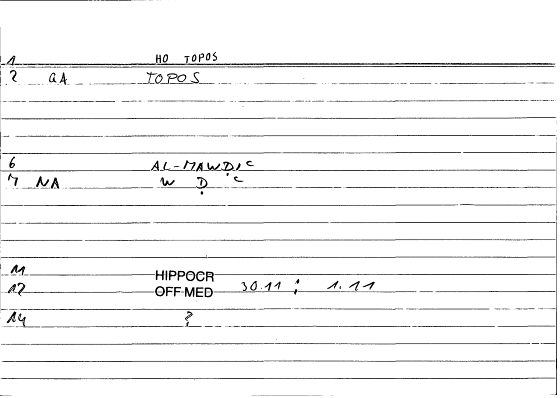 1 HO TOPOS
2 GA TOPOS
6 AL-MAWḌIʿ
7 NA W Ḍ ʿ
11 HIPPOCR
12 OFF MED 30.11 ; 1.11
14 ?